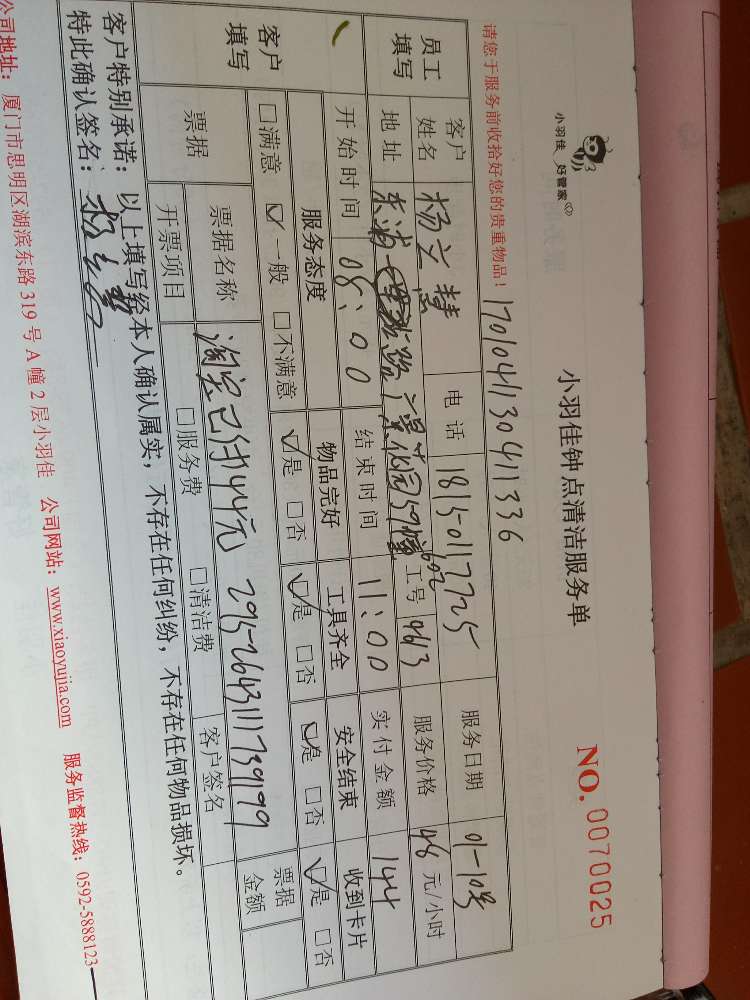 小羽佳 好管家
小羽佳钟点清洁服务单
NO. 0070025
请您于服务前收拾好您的贵重物品! 1701041130411336
员工填写 客户姓名 杨文慧 电话 18150117725 服务日期 01-10号
地址 东浦 花园 602 工号 9613 服务价格 48 元/小时
开始时间 08:00 结束时间 11:00 实付金额 144
客户填写 服务态度 物品完好 工具齐全 安全结束 收到卡片
□满意 ☑一般 □不满意 ☑是 □否 ☑是 □否 ☑是 □否 ☑是 □否
票据 票据名称 淘宝已付44元 2952643111739199 票据金额
开票项目 □服务费 □清洁费 客户签名
客户特别承诺:以上填写经本人确认属实,不存在任何纠纷,不存在任何物品损坏。
特此确认签名:
公司地址:厦门市思明区湖滨东路 319 号 A 幢 2 层小羽佳 公司网站:www.xiaoyujia.com 服务监督热线:0592-5888123